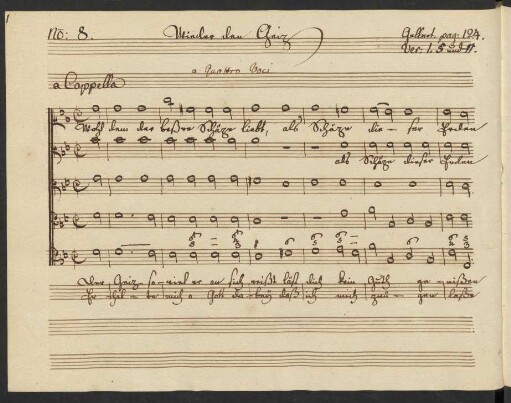 1
No: 8. Wieder den Geiz Gellert. pag: 124.
Ver: 1. 5 und 11.
a Quattro Voci
a Cappella
Wohl dem der beßre Schäze liebt, als Schäze die - ser Erden
als Schäze dieser Erden
Der Geiz so viel er an sich reißt läßt dich kein Guth ge - nießen
Gott daß ich mich